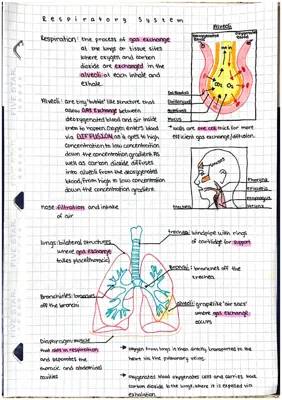 Respiratory System
Alveoli
Respiration: the process of gas exchange
at the lungs or tissue sites
where oxygen and carbon
dioxide are exchanged in the
alveoli at each inhale and
exhale.
air in
CO₂ O₂
Alveoli: are tiny "bubble" like structure that
allow GAS Exchange between
deoxygenated blood and air inside
to happen. Oxygen enters blood
via DIFFUSION as it goes to high
concentration to low concentration
down the concentration gradient. As
well as carbon dioxide diffuses
into alveoli from the deoxygenated
blood, from high to low concentration
down the concentration gradient.
* walls are one cell thick for more
efficient gas exchange/diffusion.
nose: filtration and intake
of air
Pharynx
trachea
lungs: bilateral structures
where gas exchange
takes place (thoracic)
trachea: windpipe with rings
of cartilage for support
Bronchi: branches off the
trachea
Bronchioles: branches
off the bronchi
alveoli: grapelike "air sacs"
where gas exchange
occurs
Diaphragm: muscle
that aids in respiration
and separates the
thoracic and abdominal
cavities
→ oxygen from lungs is then directly transported to the
heart via the pulmonary veins.
→ oxygenated blood oxygenates cells and carries back
carbon dioxide to the lungs, where it is expelled via
exhalation.